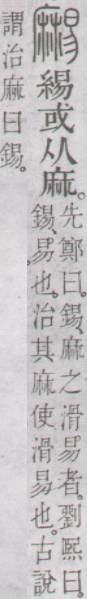 緆或从麻。
先鄭曰。錫、麻之滑易者。劉熙曰。
錫、易也。治其麻使滑易也。古說
謂治麻曰錫。